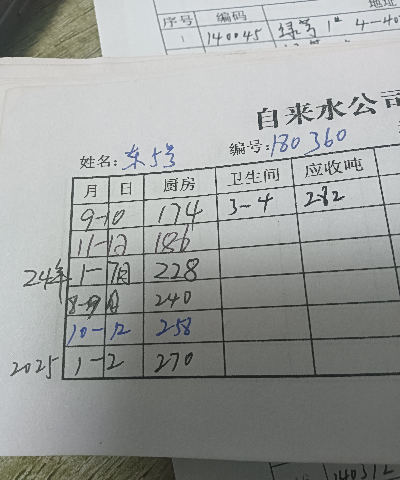 序号 编码 地址
1 140045 绿苇 1# 4-40
自来水公司
姓名: 东5号 编号: 180360
月 日 厨房 卫生间 应收吨
9-10 174 3-4 282
11-12 186
24年 1-7月 228
8-9月 240
10-12 258
2025 1-2 270
140312